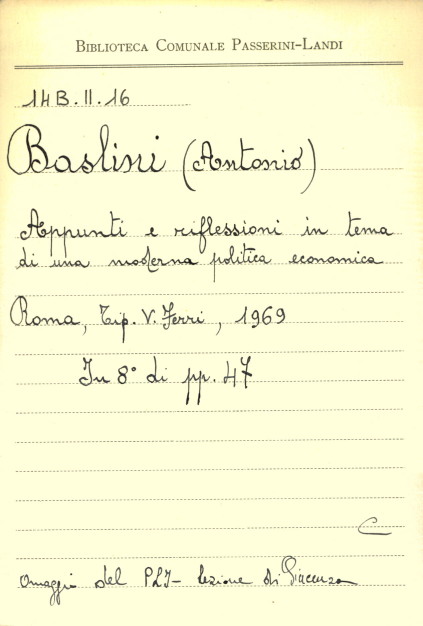 BIBLIOTECA COMUNALE PASSERINI-LANDI
14B.II.16
Baslini (Antonio)
Appunti e riflessioni in tema
di una moderna politica economica
Roma, Tip. V. Ferri, 1969
In 8° di pp. 47
C
Omaggio del PLI - sezione di Piacenza